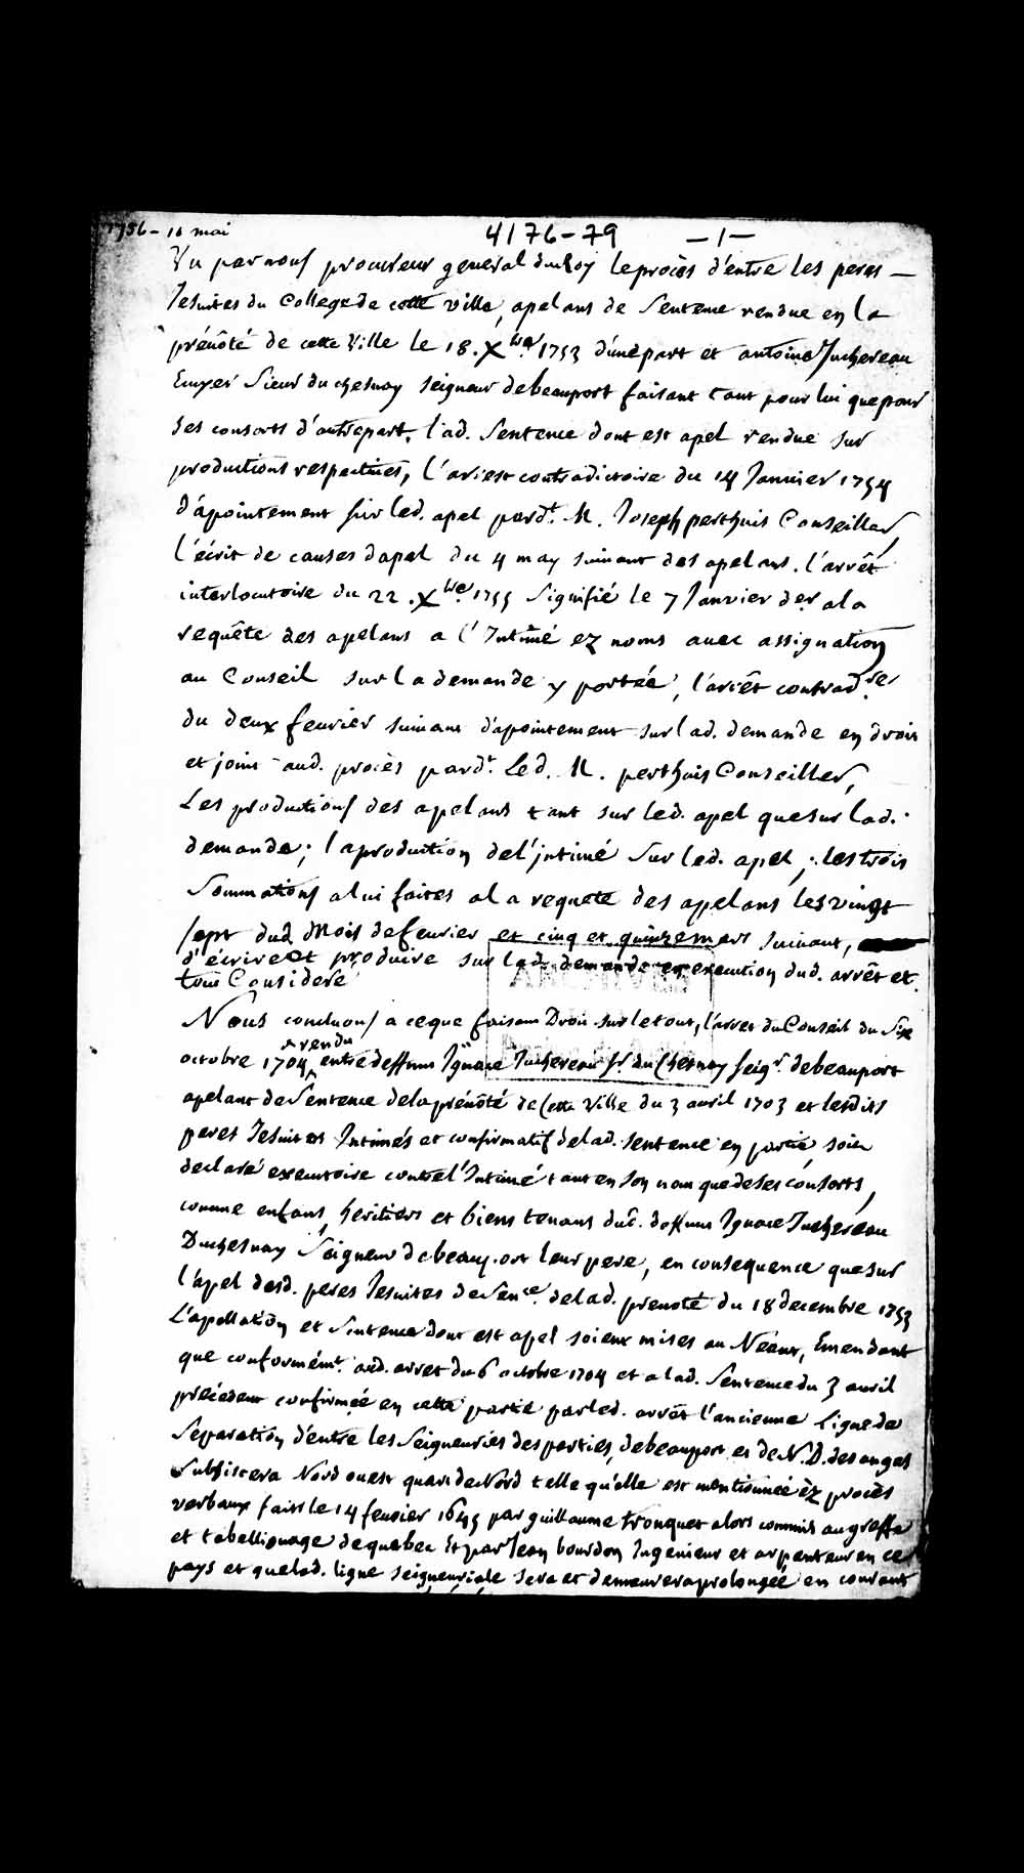 1756 - 16 mai
4176-79 -1-
Vu par nous procureur general du Roy le procès d'entre les peres
Jesuites du College de cette ville, apelans de Sentence rendue en la
prévôté de cette Ville le 18. Xbre. 1753 d'une part et antoine Juchereau
Ecuyer Sieur duchesnay seigneur de beauport faisant tant pour lui que pour
ses consorts d'autre part, lad. Sentence dont est apel rendue sur
productions respectives, l'arrest contradictoire du 14 Janvier 1754
d'apointement sur led. apel pardt. M. Joseph perthuis Conseiller,
l'écrit de causes d'apel du 4 may suivant des apelans. l'arrêt
interlocutoire du 22. Xbre. 1755 signifié le 7 Janvier der. a la
requête des apelans a l'Intimé ez noms avec assignation
au Conseil sur la demande y portée, l'arrêt contradre.
du deux fevrier suivant d'apointement sur lad. demande en droit
et joint aud. procès pardt. led. M. perthuis Conseiller,
Les productions des apelans tant sur led. apel que sur lad.
demande; la production de l'jntimé sur led. apel; les trois
Sommations a lui faites a la requete des apelans les vingt
sept dud. mois de fevrier et cinq et quinze mars suivant,
d'écrire et produire sur lad. demande en execution dud. arrêt et
tout Consideré
Nous concluons a ce que faisant Droit sur le tout, l'arret du Conseil du Six
octobre 1704 rendu entre deffunt Ignace Juchereau Sr. du Chesnay seigr. de beauport
apelant de Sentence de la prévôté de Cette Ville du 3 avril 1703 et lesdits
peres Jesuites Intimés et confirmatif de lad. sentence en partie, soit
declaré executoire contre l'Intimé tant en son nom que de ses consorts,
comme enfans, heritiers et biens tenans dud. deffunt Ignace Juchereau
Duchesnay Seigneur de beauport leur pere, en consequence que sur
l'apel desd. peres Jesuites de Sence. de lad. prevoté du 18 decembre 1753
L'apellation et Sentence dont est apel soient mises au Néant, Emendant
que conformémt. aud. arret du 6 octobre 1704 et a lad. Sentence du 3 avril
precedent confirmée en cette partie par led. arrêt l'ancienne Ligne de
Separation d'entre les Seigneuries des parties, de beauport et de N. D. des anges
Subsistera Nord ouest quart de Nord telle qu'elle est mentionnée èz procès
verbaux faits le 14 fevrier 1645 par guillaume tronquet alors commis au greffe
et tabellionage de quebec Et par Jean bourdon Ingenieur et arpenteur en ce
pays et que lad. ligne seigneuriale sera et demeurera prolongée en courant